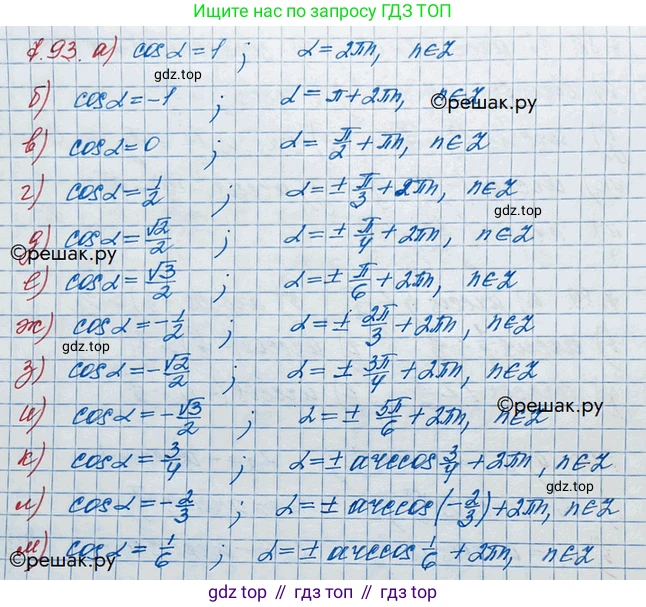 Ищите нас по запросу ГДЗ ТОП
7.93. а) cosα = 1 ; α = 2πn, n∈Z
gdz.top
б) cosα = -1 ; α = π + 2πn, n∈Z
©решак.ру
в) cosα = 0 ; α = π/2 + πn, n∈Z
г) cosα = 1/2 ; α = ± π/3 + 2πn, n∈Z
gdz.top
д) cosα = √2/2 ; α = ± π/4 + 2πn, n∈Z
©решак.ру
е) cosα = √3/2 ; α = ± π/6 + 2πn, n∈Z
ж) cosα = -1/2 ; α = ± 2π/3 + 2πn, n∈Z
gdz.top
з) cosα = -√2/2 ; α = ± 3π/4 + 2πn, n∈Z
©решак.ру
и) cosα = -√3/2 ; α = ± 5π/6 + 2πn, n∈Z
к) cosα = 3/4 ; α = ± arccos 3/4 + 2πn, n∈Z
л) cosα = -2/3 ; α = ± arccos(-2/3) + 2πn, n∈Z
м) cosα = 1/6 ; α = ± arccos 1/6 + 2πn, n∈Z
©решак.ру
gdz top // гдз топ // gdz.top